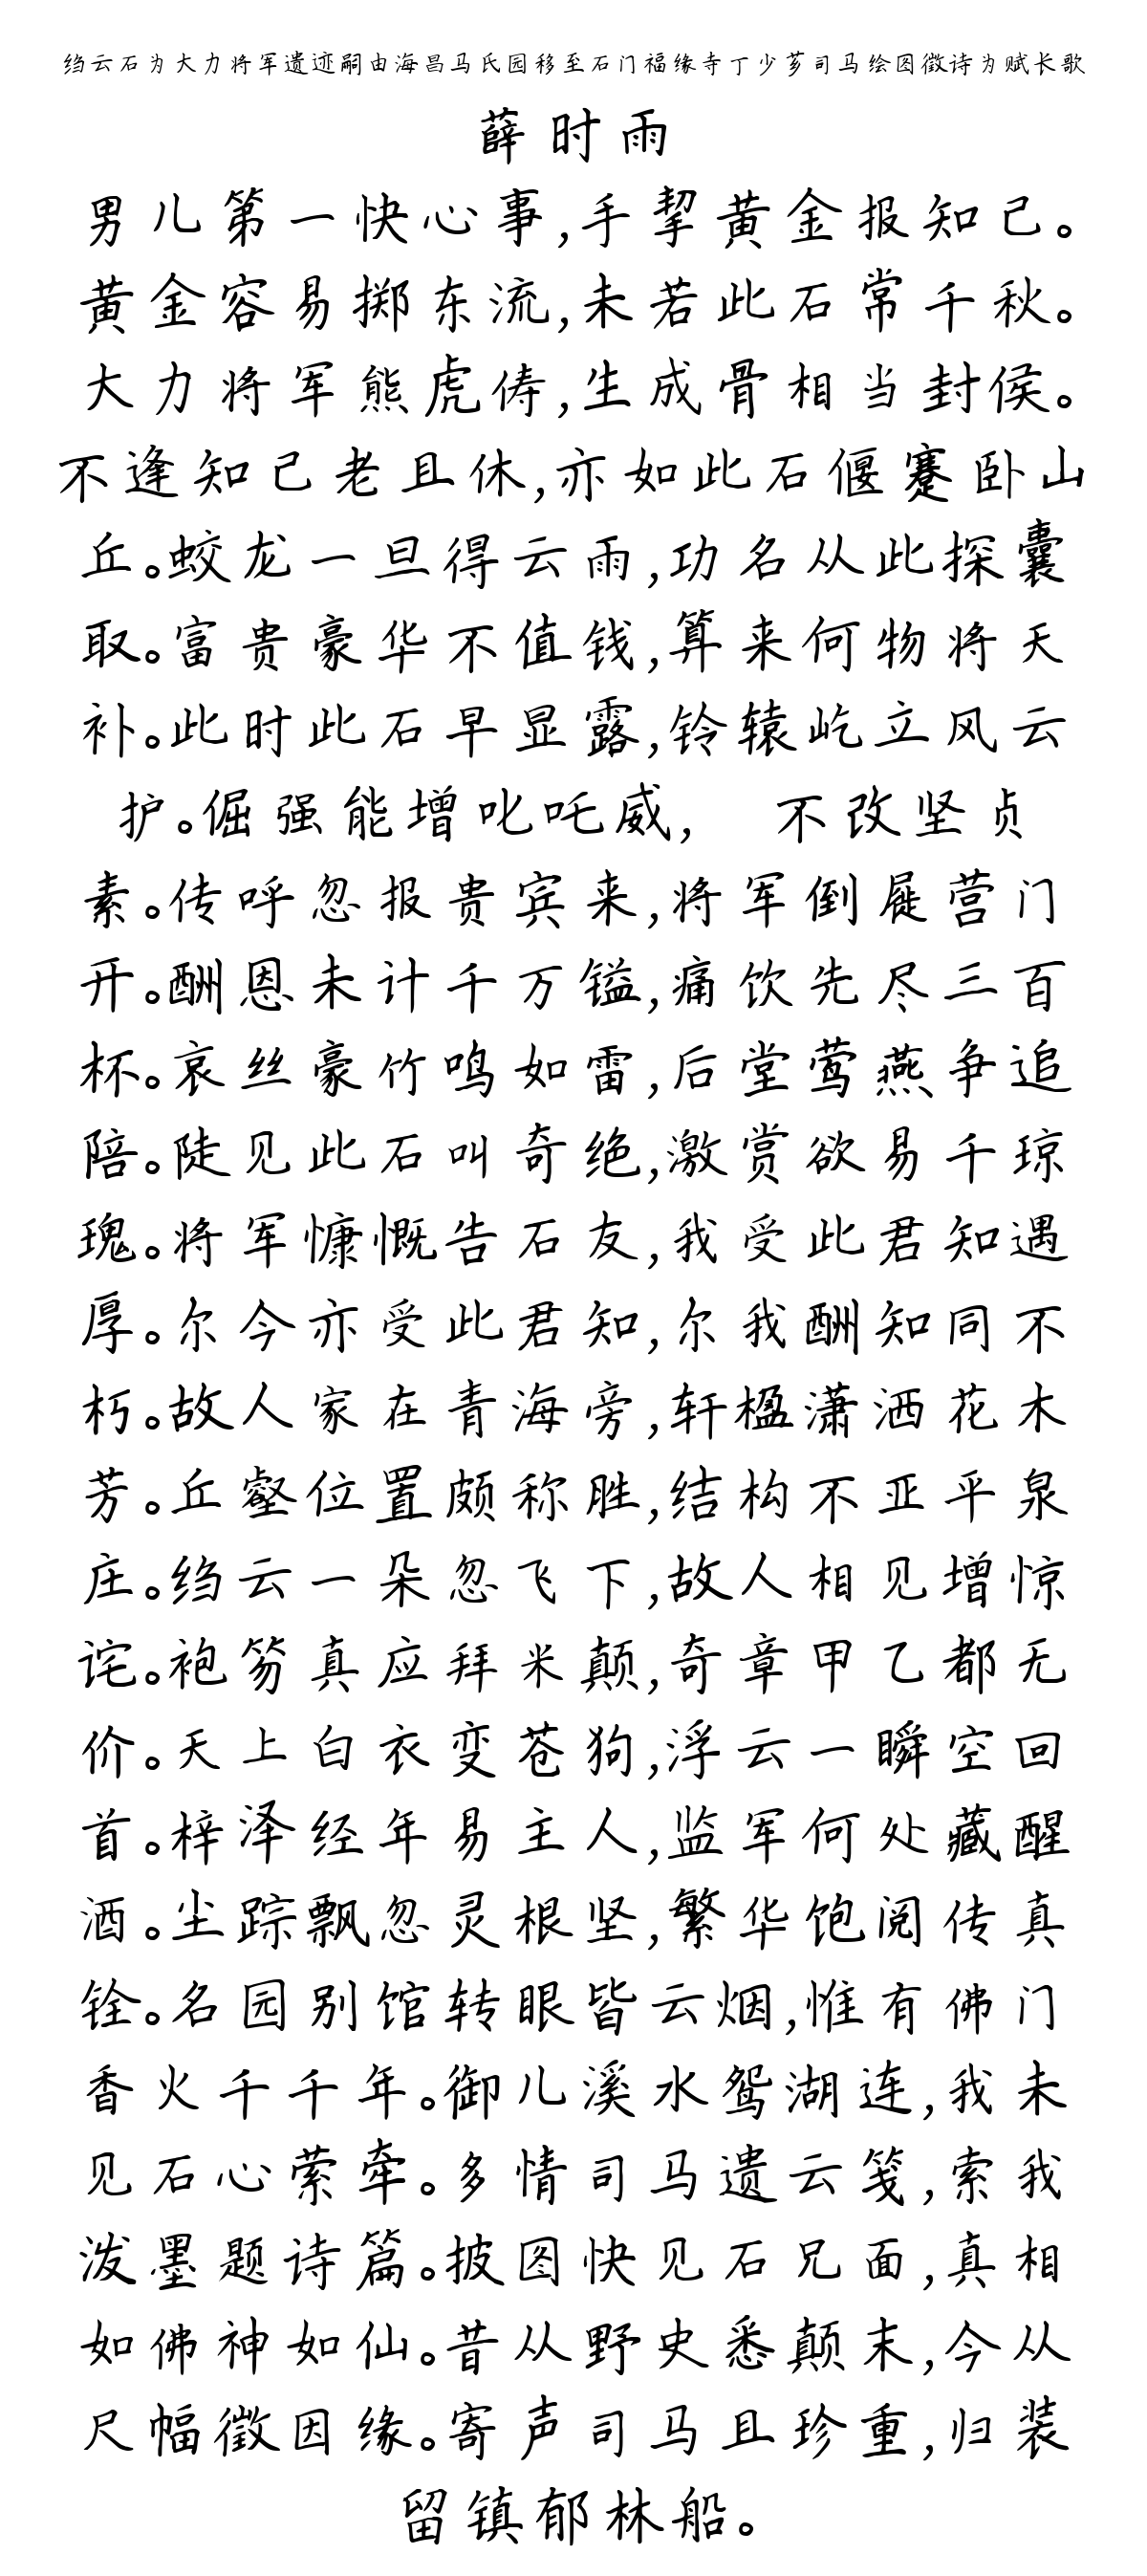 绉云石为大力将军遗迹嗣由海昌马氏园移至石门福缘寺丁少芗司马绘图徵诗为赋长歌
薛时雨
男儿第一快心事,手挈黄金报知己。
黄金容易掷东流,未若此石常千秋。
大力将军熊虎俦,生成骨相当封侯。
不逢知己老且休,亦如此石偃蹇卧山
丘。蛟龙一旦得云雨,功名从此探囊
取。富贵豪华不值钱,算来何物将天
补。此时此石早显露,铃辕屹立风云
护。倔强能增叱吒威, 不改坚贞
素。传呼忽报贵宾来,将军倒屣营门
开。酬恩未计千万镒,痛饮先尽三百
杯。哀丝豪竹鸣如雷,后堂莺燕争追
陪。陡见此石叫奇绝,激赏欲易千琼
瑰。将军慷慨告石友,我受此君知遇
厚。尔今亦受此君知,尔我酬知同不
朽。故人家在青海旁,轩楹潇洒花木
芳。丘壑位置颇称胜,结构不亚平泉
庄。绉云一朵忽飞下,故人相见增惊
诧。袍笏真应拜米颠,奇章甲乙都无
价。天上白衣变苍狗,浮云一瞬空回
首。梓泽经年易主人,监军何处藏醒
酒。尘踪飘忽灵根坚,繁华饱阅传真
铨。名园别馆转眼皆云烟,惟有佛门
香火千千年。御儿溪水鸳湖连,我未
见石心萦牵。多情司马遗云笺,索我
泼墨题诗篇。披图快见石兄面,真相
如佛神如仙。昔从野史悉颠末,今从
尺幅徵因缘。寄声司马且珍重,归装
留镇郁林船。